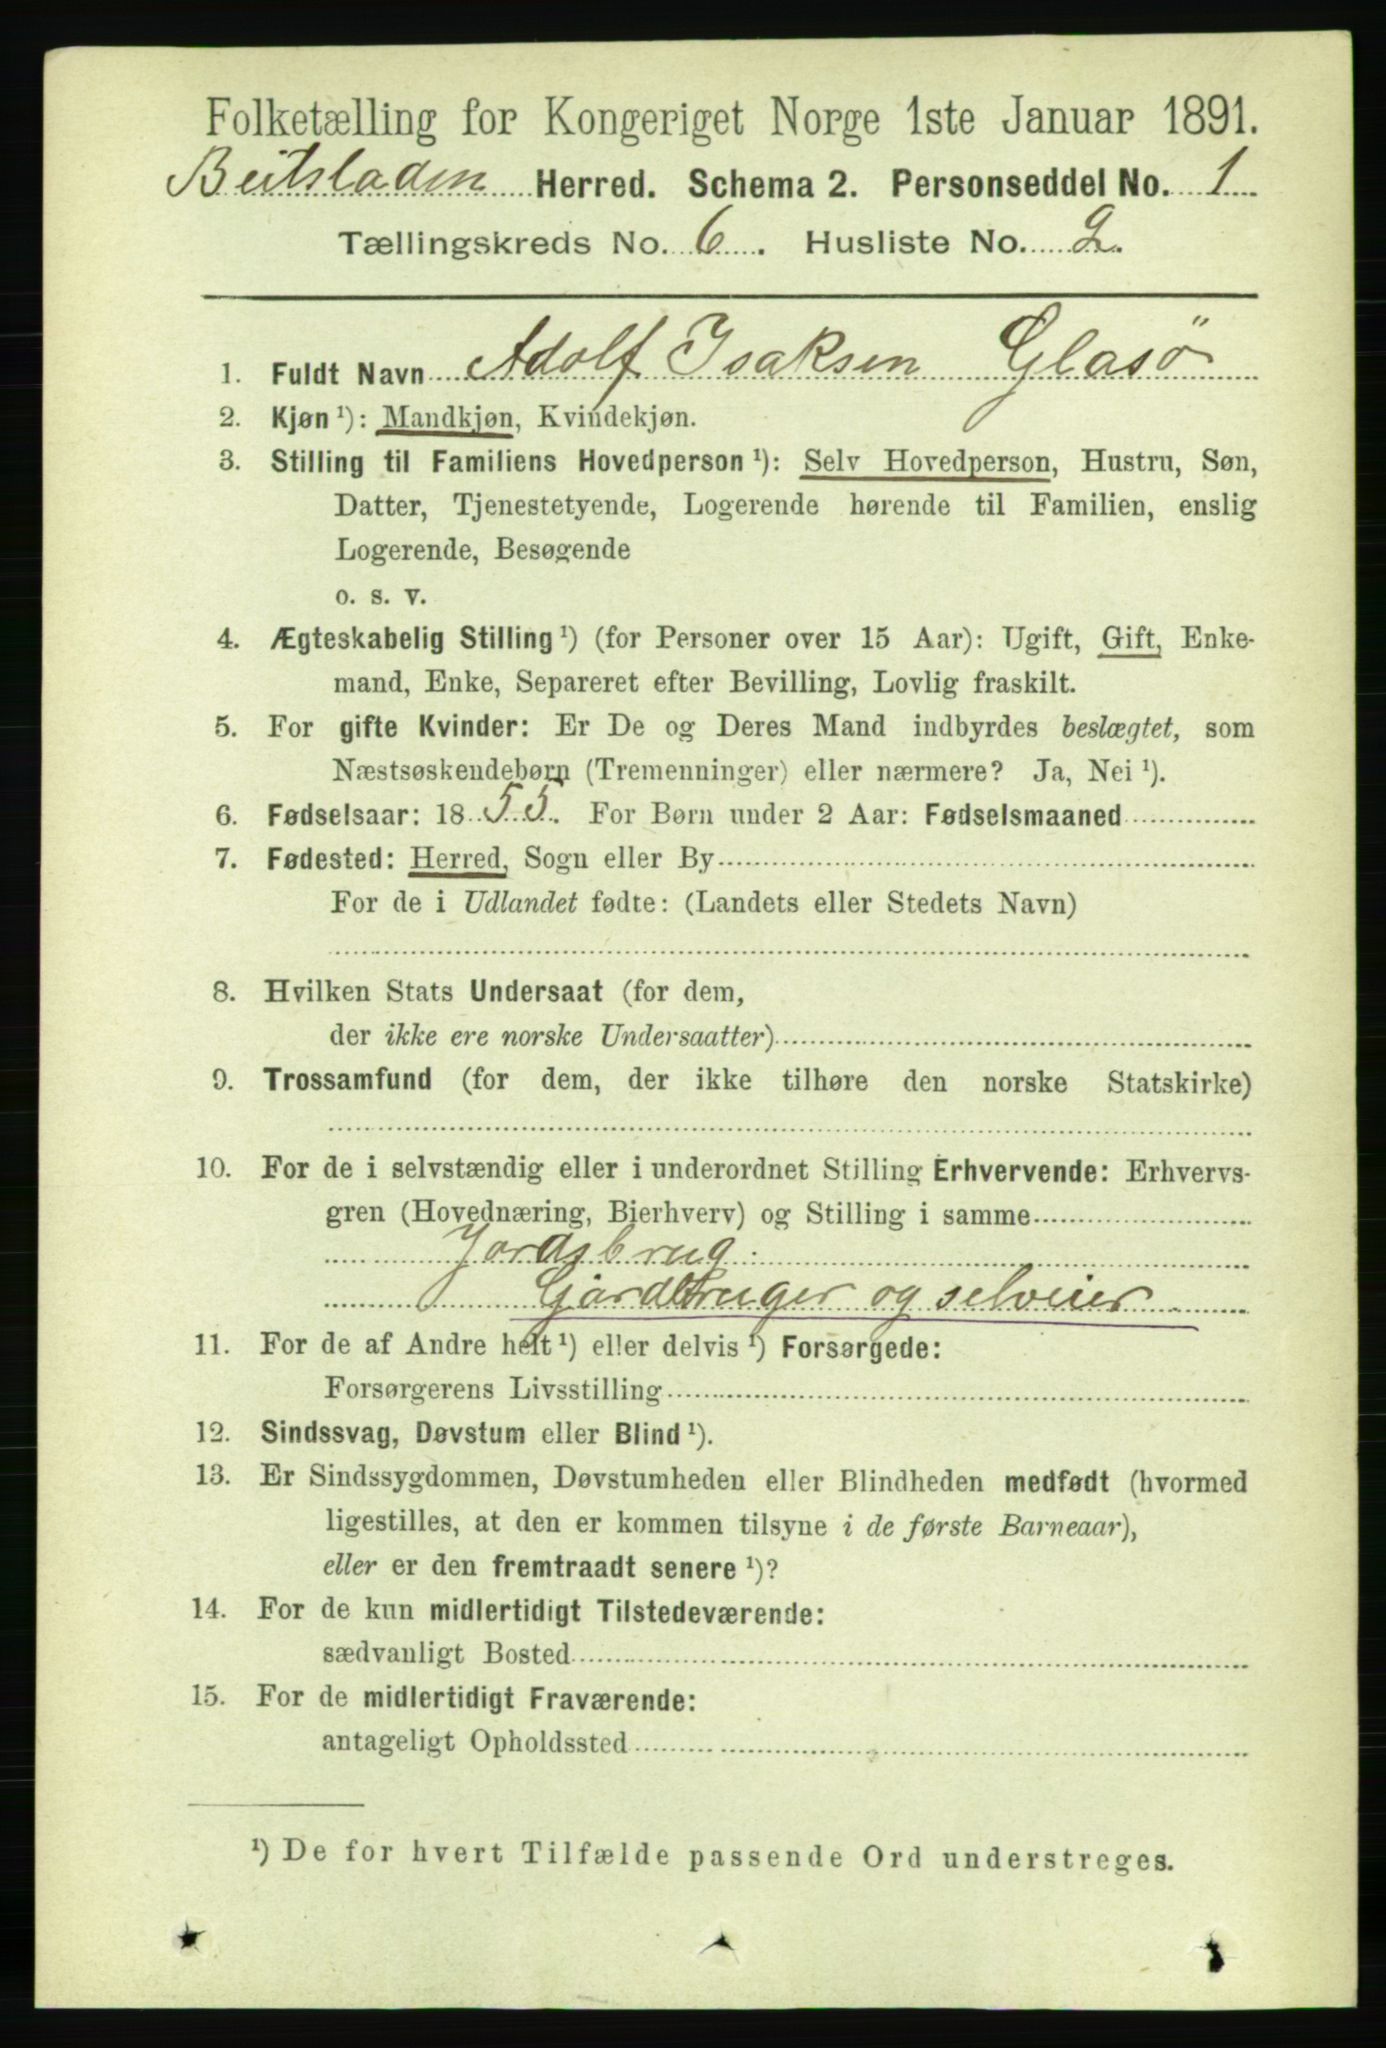 Folketælling for Kongeriget Norge 1ste Januar 1891.
Beitstaden Herred. Schema 2. Personseddel No. 1
Tællingskreds No. 6. Husliste No. 2.
1. Fuldt Navn Adolf Isaksen Glasö
2. Kjøn ¹): Mandkjøn, Kvindekjøn.
3. Stilling til Familiens Hovedperson ¹): Selv Hovedperson, Hustru, Søn,
Datter, Tjenestetyende, Logerende hørende til Familien, enslig
Logerende, Besøgende
o. s. v.
4. Ægteskabelig Stilling ¹) (for Personer over 15 Aar): Ugift, Gift, Enke-
mand, Enke, Separeret efter Bevilling, Lovlig fraskilt.
5. For gifte Kvinder: Er De og Deres Mand indbyrdes beslægtet, som
Næstsøskendebørn (Tremenninger) eller nærmere? Ja, Nei ¹).
6. Fødselsaar: 1855. For Børn under 2 Aar: Fødselsmaaned
7. Fødested: Herred, Sogn eller By
For de i Udlandet fødte: (Landets eller Stedets Navn)
8. Hvilken Stats Undersaat (for dem,
der ikke ere norske Undersaatter)
9. Trossamfund (for dem, der ikke tilhøre den norske Statskirke)
10. For de i selvstændig eller i underordnet Stilling Erhvervende: Erhvervs-
gren (Hovednæring, Bierhverv) og Stilling i samme
Jordsbrug:
Gjardbruger og selveier
11. For de af Andre helt ¹) eller delvis ¹) Forsørgede:
Forsørgerens Livsstilling
12. Sindssvag, Døvstum eller Blind ¹).
13. Er Sindssygdommen, Døvstumheden eller Blindheden medfødt (hvormed
ligestilles, at den er kommen tilsyne i de første Barneaar),
eller er den fremtraadt senere ¹)?
14. For de kun midlertidigt Tilstedeværende:
sædvanligt Bosted
15. For de midlertidigt Fraværende:
antageligt Opholdssted
¹) De for hvert Tilfælde passende Ord understreges.